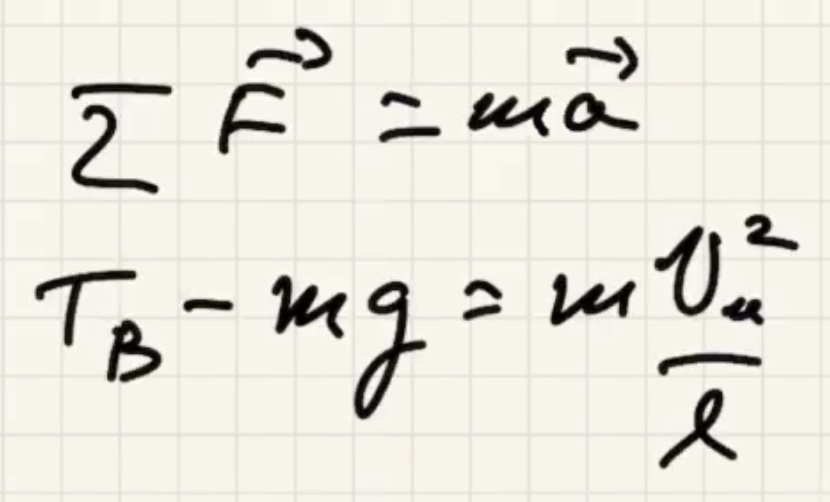 ∑ F⃗ = ma⃗
T_B - mg = m v_м² / l